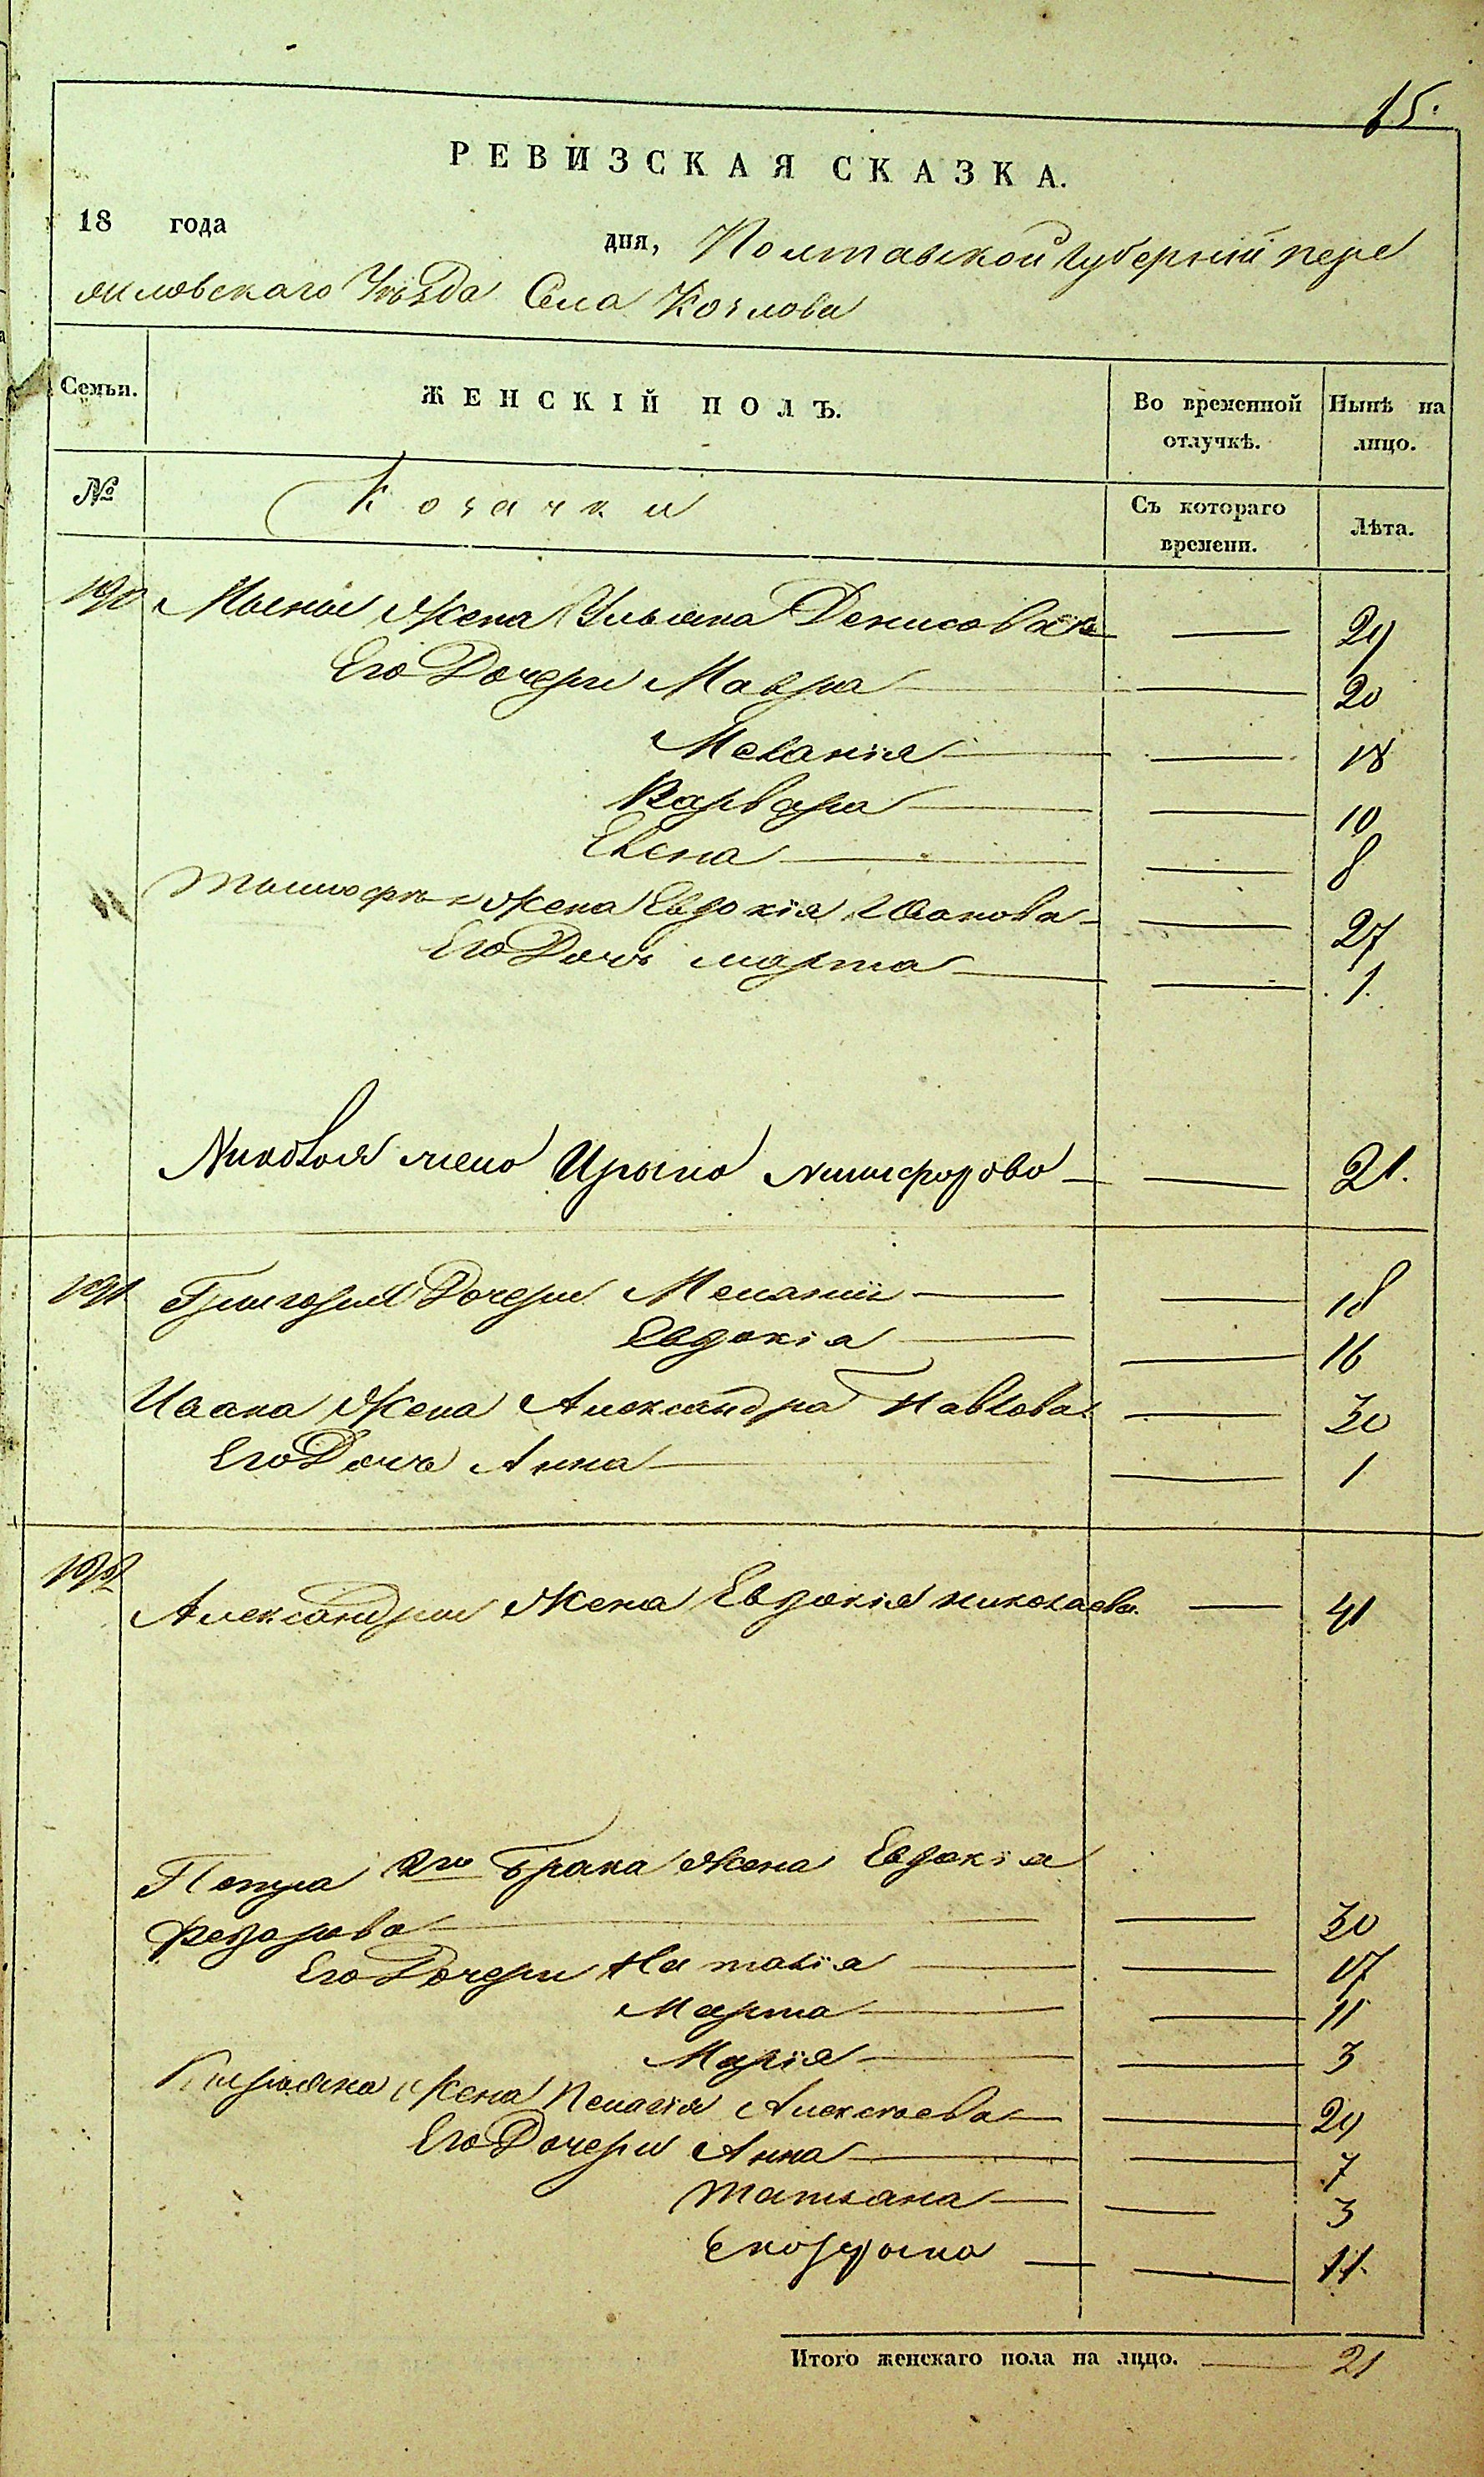 15.
РЕВИЗСКАЯ СКАЗКА.
18 года дня, Полтавской Губерніи пере
яславскаго Уѣзда Села Козлова
Семьи. ЖЕНСКІЙ ПОЛЪ. Во временной отлучкѣ. Нынѣ на лицо.
№ Козачки Съ котораго времени. Лѣта.
190 Жена Ульяна Денисова
Его Дочери Мавра 20
Меланія 18
Варвара 10
Елена 8
Жена Евдокія Иванова 27
Его Дочь марта 1.
Николая жена Ирына Никифорова 21.
191 Григорія Дочери Меланіи 18
Евдокія 16
Ивана Жена Александра Павлова 30
Его Дочь Анна 1
192
Александра Жена Евдокія николаева 41
Петра 2го Брака Жена Евдокія
Федорова 30
Его Дочери Наталія 17
Марта 11
Марія 3
Кирьяна Жена Пелагія Алексѣева 29
Его Дочери Анна 7
Татьяна 3
11.
Итого женскаго пола на лицо. 21